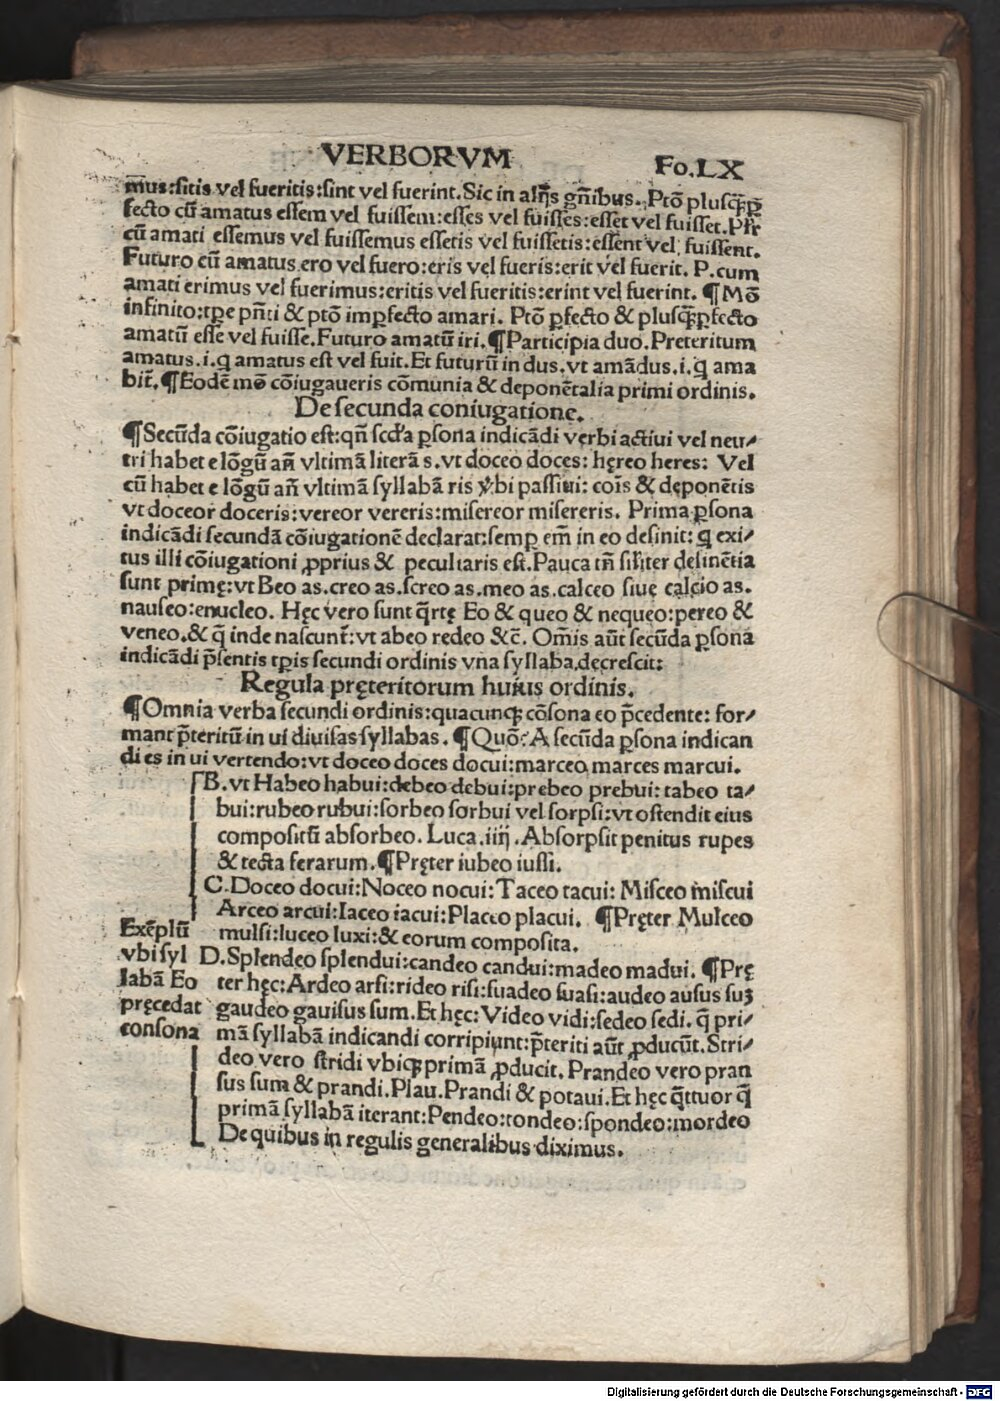 VERBORVM
Fo.LX
m̄us:sitis vel fueritis:sint vel fuerint.Sic in alijs gñibus. Ptō plusq̄ꝑ
fecto cū amatus essem vel fuissem:esses vel fuisses:esset vel fuisset.Plr̄
cū amati essemus vel fuissemus essetis vel fuissetis:essent vel fuissent.
Futuro cū amatus ero vel fuero:eris vel fueris:erit vel fuerit. P.cum
amati erimus vel fuerimus:eritis vel fueritis:erint vel fuerint. ¶Mō
infinito:tꝑe pñti & ptō imꝑfecto amari. Ptō ꝑfecto & plusq̄ꝑfecto
amatū esse vel fuisse.Futuro amatū iri.¶Participia duo.Preteritum
amatus.i.q amatus est vel fuit.Et futurū in dus.vt amādus.i.q ama
bit̄.¶Eodē mō cōiugaueris cōmunia & deponētalia primi ordinis.
De secunda coniugatione.
¶Secūda cōiugatio est:qñ scd'a ꝑsona indicādi verbi actiui vel neu/
tri habet e lōgū añ vltimā literā s.vt doceo doces: hęreo heres: Vel
cū habet e lōgū añ vltimā syllabā ris ỽbi passiui: cois & deponētis
vt doceor doceris:vereor vereris:misereor misereris. Prima ꝑsona
indicādi secundā cōiugationē declarat:semꝑ em̄ in eo desinit: q exi/
tus illi cōiugationi ꝓprius & peculiaris est.Pauca tñ sil'iter desinētia
sunt primę:vt Beo as.creo as.screo as.meo as.calceo siue calcio as.
nauseo:enucleo. Hęc vero sunt q̄rtę Eo & queo & nequeo:pereo &
veneo.& q̄ inde nascunt̄:vt abeo redeo &c̄. Om̄is aūt secūda ꝑsona
indicādi p̄sentis tꝑis secundi ordinis vna syllaba decrescit:
Regula pręteritorum huius ordinis.
¶Omnia verba secundi ordinis:quacunqꝫ cōsona eo p̄cedente: for/
mant p̄teritū in ui diuisas syllabas. ¶Quō? A secūda ꝑsona indican
di es in ui vertendo:vt doceo doces docui:marceo marces marcui.
B.vt Habeo habui:debeo debui:prebeo prebui:tabeo ta/
bui:rubeo rubui:sorbeo sorbui vel sorpsi:vt ostendit eius
compositū absorbeo. Luca.iiij.Absorpsit penitus rupes
& tecta ferarum.¶Pręter iubeo iussi.
C.Doceo docui:Noceo nocui:Taceo tacui: Misceo miscui
Arceo arcui:Iaceo iacui:Placeo placui. ¶Pręter Mulceo
mulsi:luceo luxi:& eorum composita.
D.Splendeo splendui:candeo candui:madeo madui. ¶Prę
ter hęc:Ardeo arsi:rideo risi:suadeo suasi:audeo ausus suꝫ
gaudeo gauisus sum.Et hęc:Video vidi:sedeo sedi.q̄ pri/
mā syllabā indicandi corripiunt:p̄teriti aūt ꝓducūt.Stri/
deo vero stridi vbiqꝫ primā ꝓducit.Prandeo vero pran
sus sum & prandi.Plau.Prandi & potaui.Et hęc q̄ttuor q̄
primā syllabā iterant:Pendeo:tondeo:spondeo:mordeo
De quibus in regulis generalibus diximus.
Exēplū
vbi syl
labā Eo
pręcedat
consona
Digitalisierung gefördert durch die Deutsche Forschungsgemeinschaft - DFG